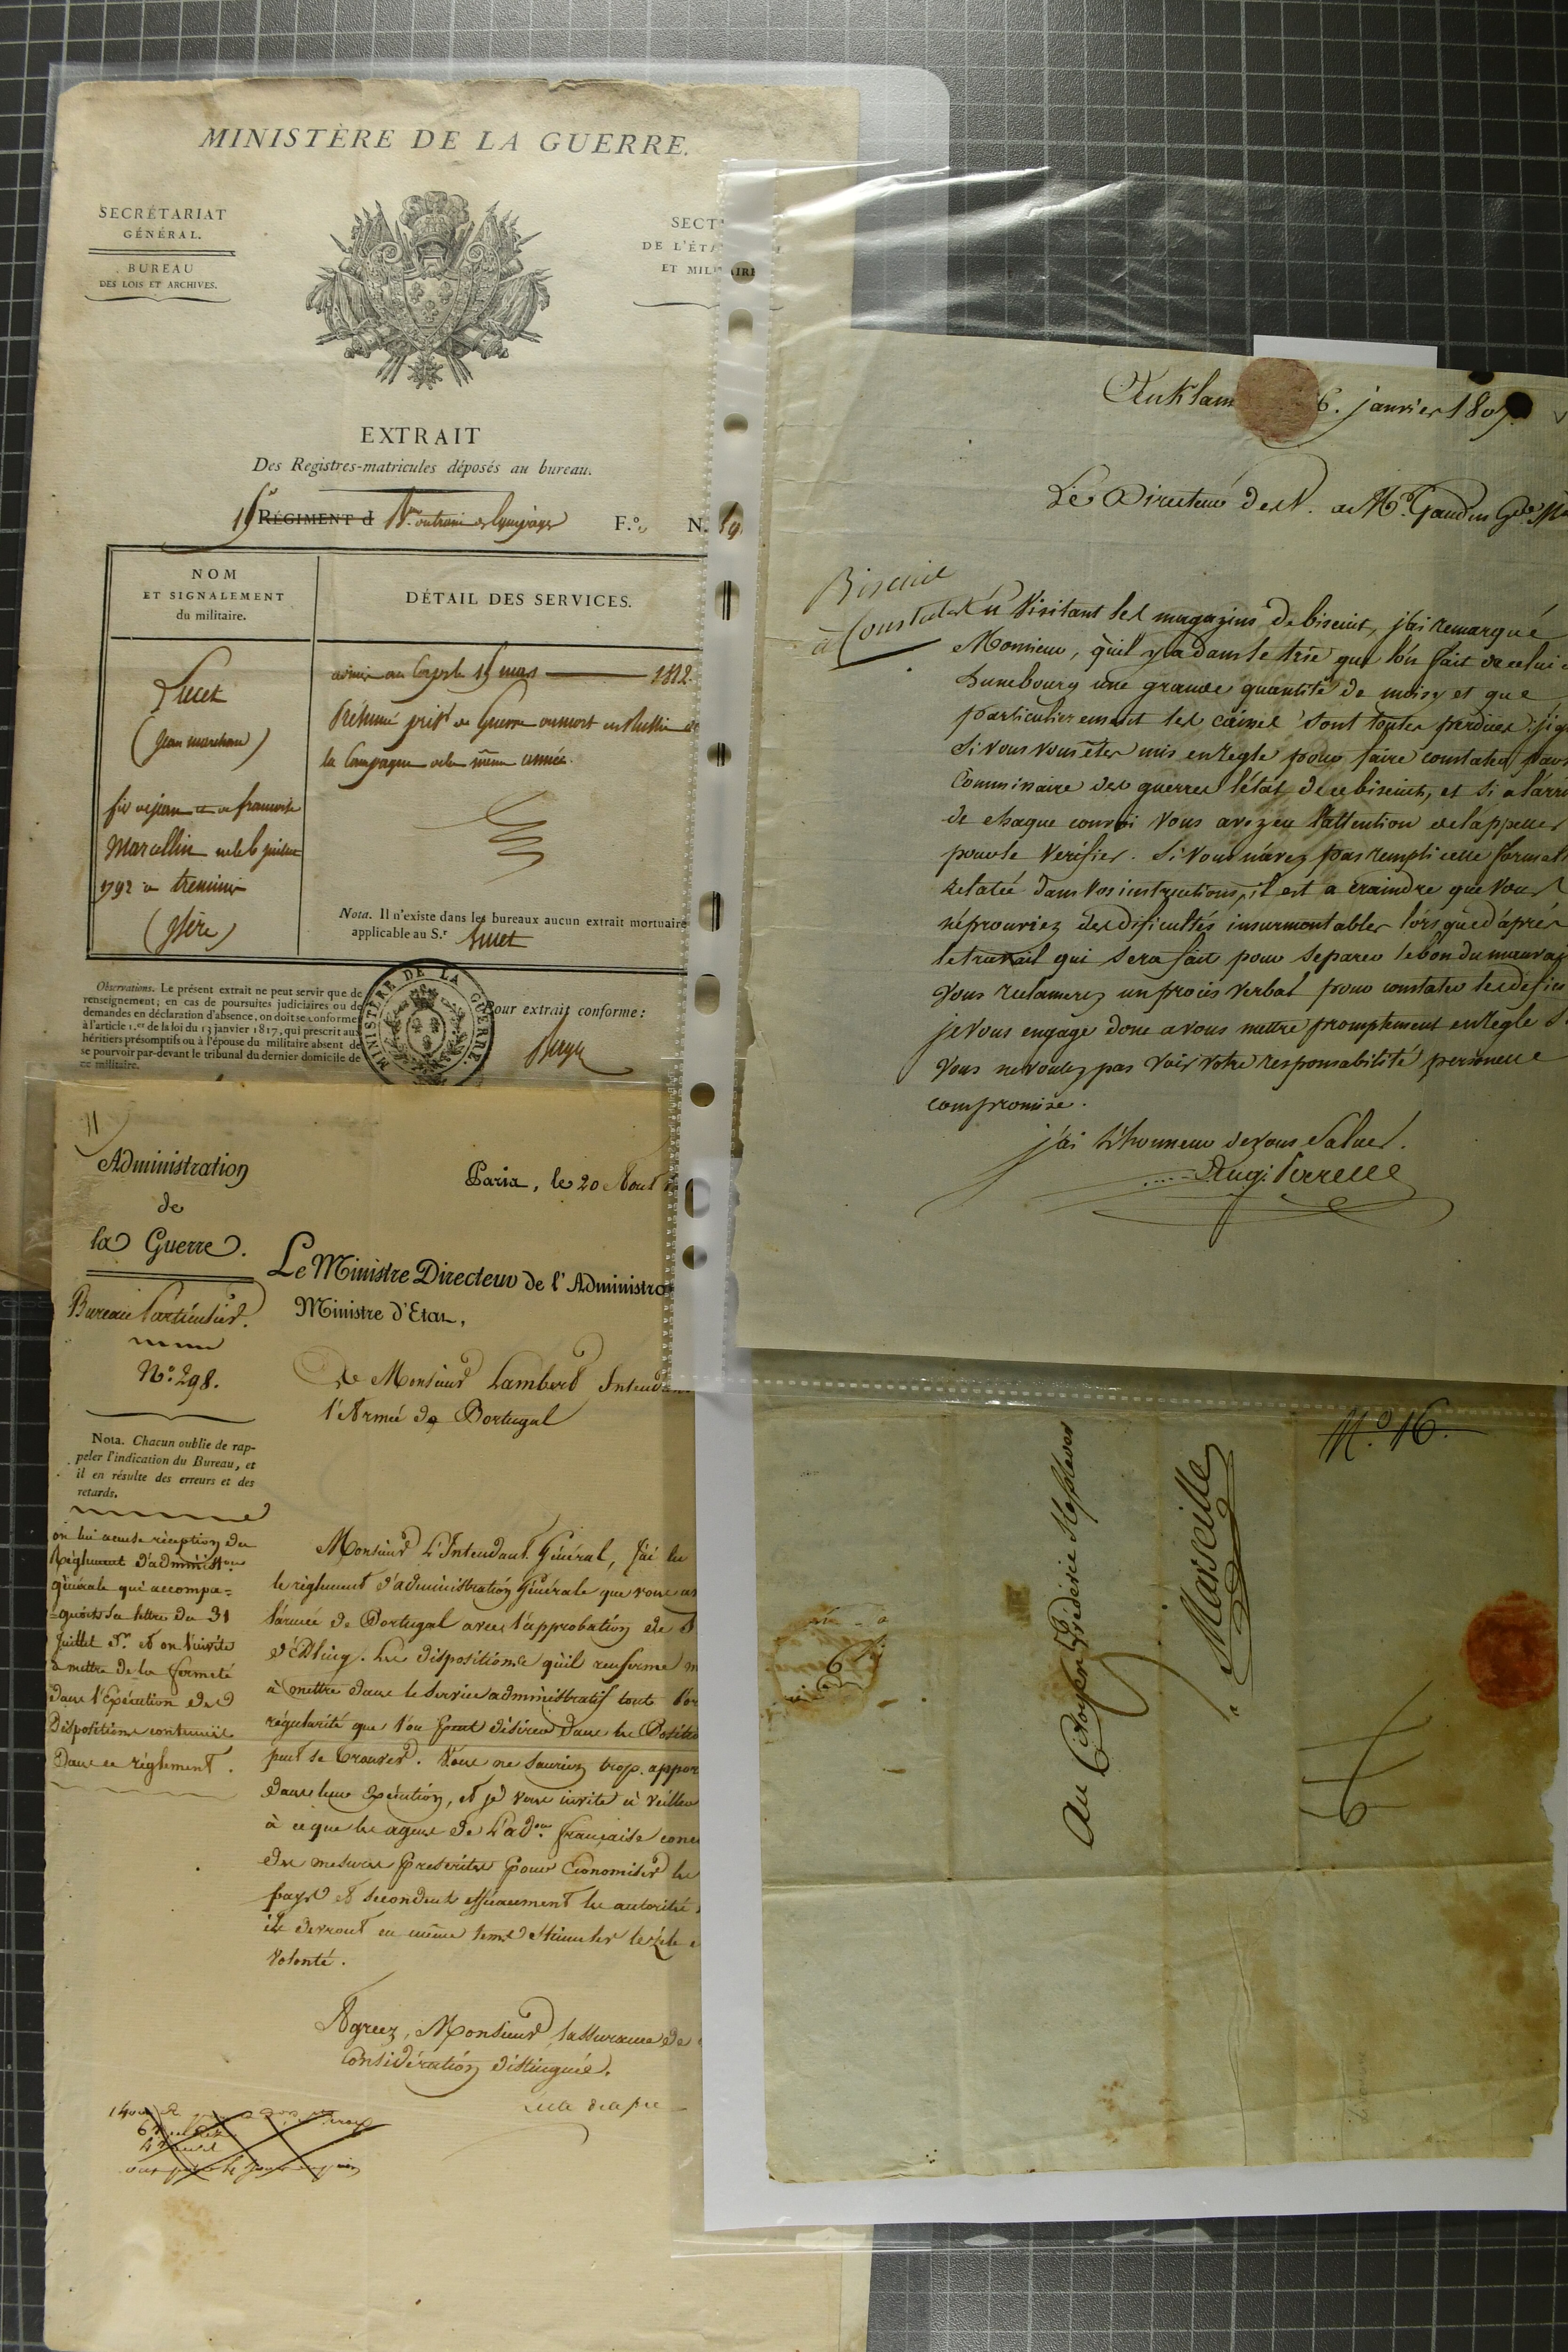 MINISTÈRE DE LA GUERRE.
SECRÉTARIAT
GÉNÉRAL.
BUREAU
DES LOIS ET ARCHIVES.
SECT
DE L'ÉTA
ET MIL AIRE
EXTRAIT
Des Registres-matricules déposés au bureau.
15e RÉGIMENT d Bon F.° N.
NOM
ET SIGNALEMENT
du militaire.
DÉTAIL DES SERVICES.
(Jean marchand)
fils de jean et de francoise
Marcellin né le 6 juillet
1792 à treminis
(Isère)
arrivé au Corps le 15 mars 1812.
Présumé prisr de Guerre ou mort en Russie
la Campagne de la même année.
Nota. Il n'existe dans les bureaux aucun extrait mortuaire
applicable au S.r
Observations. Le présent extrait ne peut servir que de
renseignement; en cas de poursuites judiciaires ou de
demandes en déclaration d'absence, on doit se conformer
à l'article 1.er de la loi du 13 janvier 1817, qui prescrit aux
héritiers présomptifs ou à l'épouse du militaire absent de
se pourvoir par-devant le tribunal du dernier domicile de
ce militaire.
MINISTÈRE DE LA GUERRE.
Pour extrait conforme :
Administration
de
la Guerre.
Bureau Particulier.
N.° 298.
Nota. Chacun oublie de rap-
peler l'indication du Bureau, et
il en résulte des erreurs et des
retards.
on lui accuse réception du
Réglement d'administon
générale qui accompa=
=gnoit sa lettre du 31
Juillet Dr et on l'invite
à mettre de la fermeté
dans l'Exécution des
Dispositions contenues
Dans ce réglement.
Paris, le 20 Aout
Le Ministre Directeur de l'Administra
Ministre d'Etat,
A Monsieur Lambert Intendant
l'Armée de Portugal
Monsieur L'Intendant Général, J'ai lu
le réglement d'administration Générale que vous a
l'armée de Portugal avec l'approbation de
d'Essling. Les dispositions qu'il renferme
à mettre dans le Service administratif toute l'or
régularité que l'on peut désirer dans les Positio
peut se trouver. Vous ne Sauriez trop appor
dans leur Exécution, et je vous invite à veiller
à ce que les agens de L'adon française conc
des mesures prescrites pour Economiser les
pays et secondent efficacement les autorités
ils devront en même tems Stimuler le zèle e
Volonté.
Agréez, Monsieur, l'assurance de
Considération distinguée.
Anklam 6. janvier 1807.
Le Directeur des V. à Mr. Gaudin Gde Ma
Biscuit
à Constater
En Visitant les magazins de biscuit, j'ai remarqué
Monsieur, qu'il y a dans le trie que l'on fait de celui
Lunebourg une grande quantité de moisy et que
particulierement les caisses sont toutes perdues j'ig
si vous vous etes mis en regle pour faire constater par
Commissaire des guerres l'état de ce biscuit, et si a l'arri
de chaque convoi vous avez eu l'attention de l'appeller
pour le verifier. Si vous n'avez pas rempli cette formali
relatée dans vos instructions, il est a craindre que vous
n'éprouviez des dificultés insurmontables lors que d'après
le travail qui sera fait pour separer le bon du mauvai
Vous reclamerez un procès verbal pour constater les defic
je vous engage donc a vous mettre promptement en regle s
Vous ne voulez pas voir votre responsabilité personnelle
compromise.
j'ai l'honneur de vous Saluer.
Aug. Perrelle
N.° 16.
Au Citoyen Fréderic
à Marseille